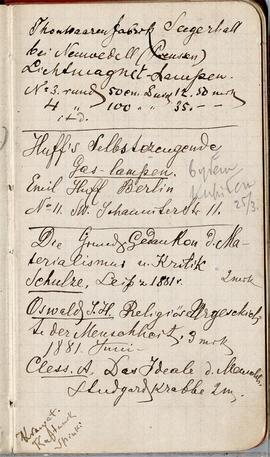 Thonwaarenfabrik Sagerhall
bei Neuwedell (Preussen)
Lichtmagnet-Lampen.
No 3. rund 50 cm. 12.50 mrk
4 " 100 " 35.—
Huff's Selbsterzeugende
Gas-lampen.
Emil Huff Berlin
No 11. SW. Johanniterstr 11.
25/3.
Die Grund Gedanken d. Ma-
terialismus u. Kritik
Schulze, Leipz 1881. 2 mrk
Oswald, J. H. Religiös Urgeschich
te der Menschheit, 3 mrk
1881. Juni—
Cless. A. Das Ideale d. Mensch.
Studgard Krabbe 2 m.